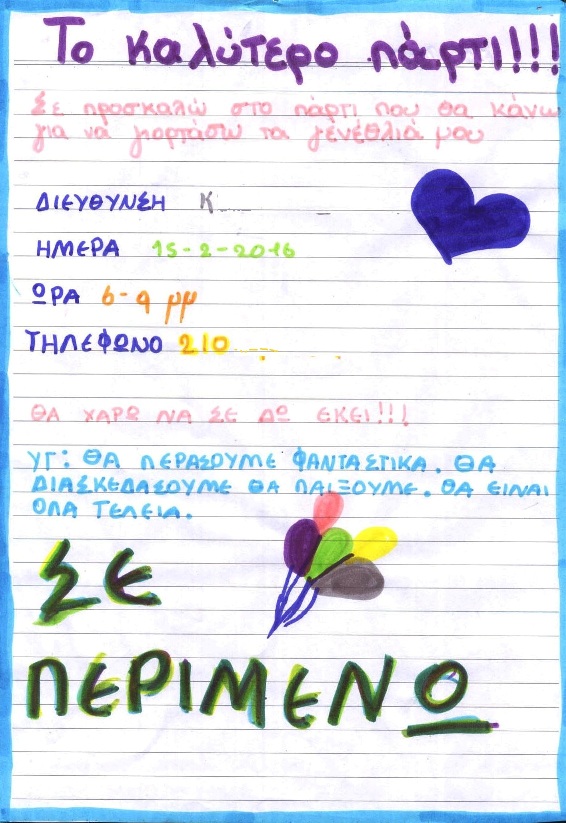 Το καλύτερο πάρτι!!!
Σε προσκαλώ στο πάρτι που θα κάνω
για να γιορτάσω τα γενέθλιά μου
ΔΙΕΥΘΥΝΣΗ Κ
ΗΜΕΡΑ 15-2-2016
ΩΡΑ 6-9 μμ
ΤΗΛΕΦΩΝΟ 210
ΘΑ ΧΑΡΩ ΝΑ ΣΕ ΔΩ ΕΚΕΙ!!!
ΥΓ: ΘΑ ΠΕΡΑΣΟΥΜΕ ΦΑΝΤΑΣΤΙΚΑ. ΘΑ
ΔΙΑΣΚΕΔΑΣΟΥΜΕ ΘΑ ΠΑΙΞΟΥΜΕ. ΘΑ ΕΙΝΑΙ
ΟΛΑ ΤΕΛΕΙΑ.
ΣΕ
ΠΕΡΙΜΕΝΩ